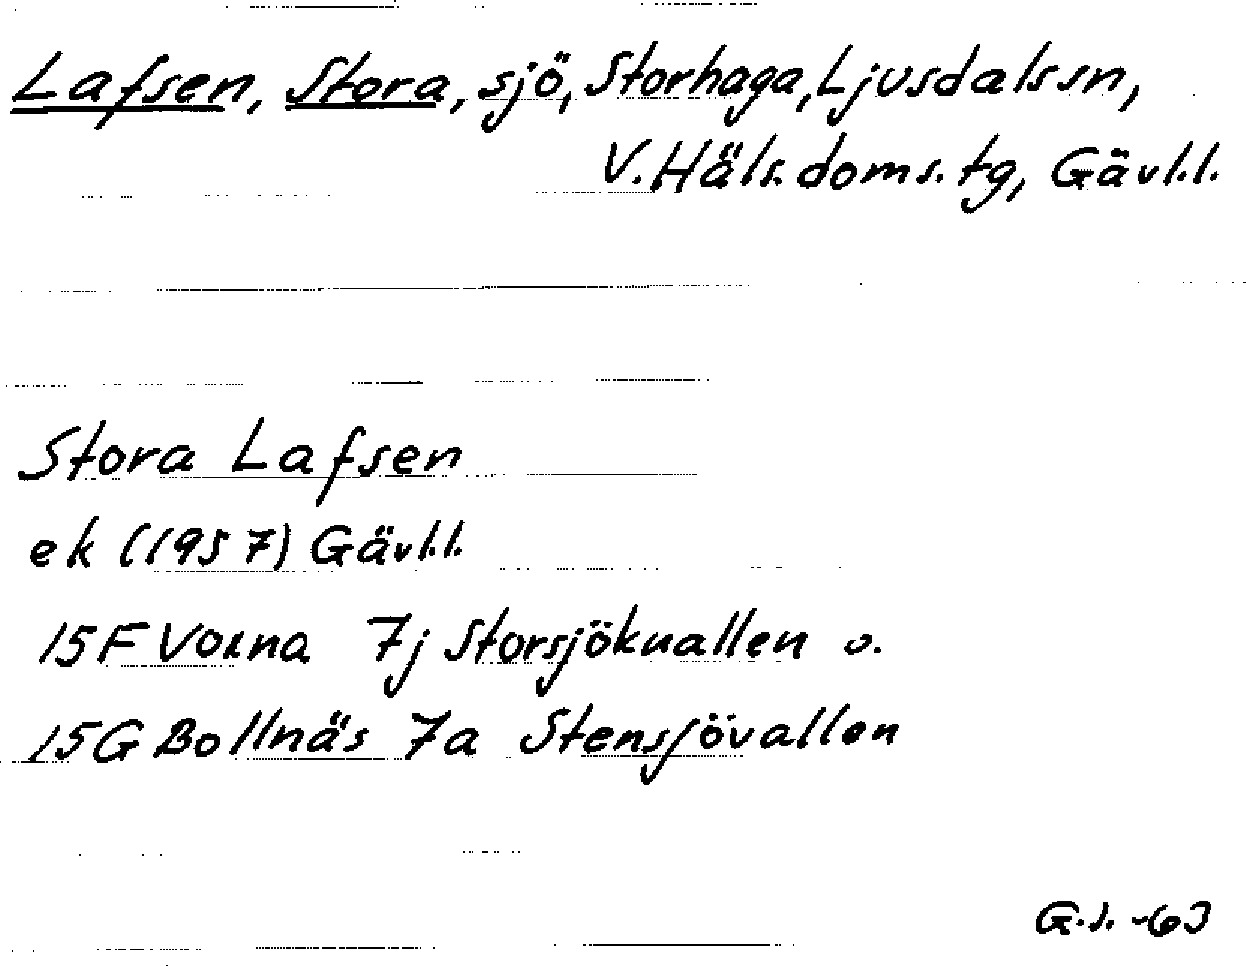 Lafsen, Stora, sjö, Storhaga, Ljusdals sn,
V. Häls. doms. tg, Gävl.l.
Stora Lafsen
ek (1957) Gävl.l.
15F Voxna 7j Storsjökvallen o.
15G Bollnäs 7a Stensjövallen
G.J. -63